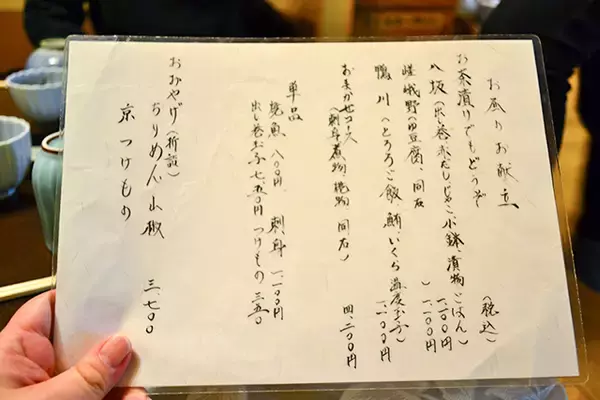 お昼のお献立
お茶漬けでもどうぞ (税込)
八坂(出し巻、赤だし、じゃこ、小鉢、漬物、ごはん) 一、一〇〇円
嵯峨野(田豆腐、同右) 一、一〇〇円
鴨川(とろろご飯、鮪、いくら、温度玉子) 一、一〇〇円
おまかせコース 四、二〇〇円
(刺身、煮物、焼物、同右)
単品
焼魚 八〇〇円 刺身 一、一〇〇円
出し巻玉子 七五〇円 つけもの 三五〇
おみやげ(折詰)
ちりめん山椒
京つけもの 三、七〇〇